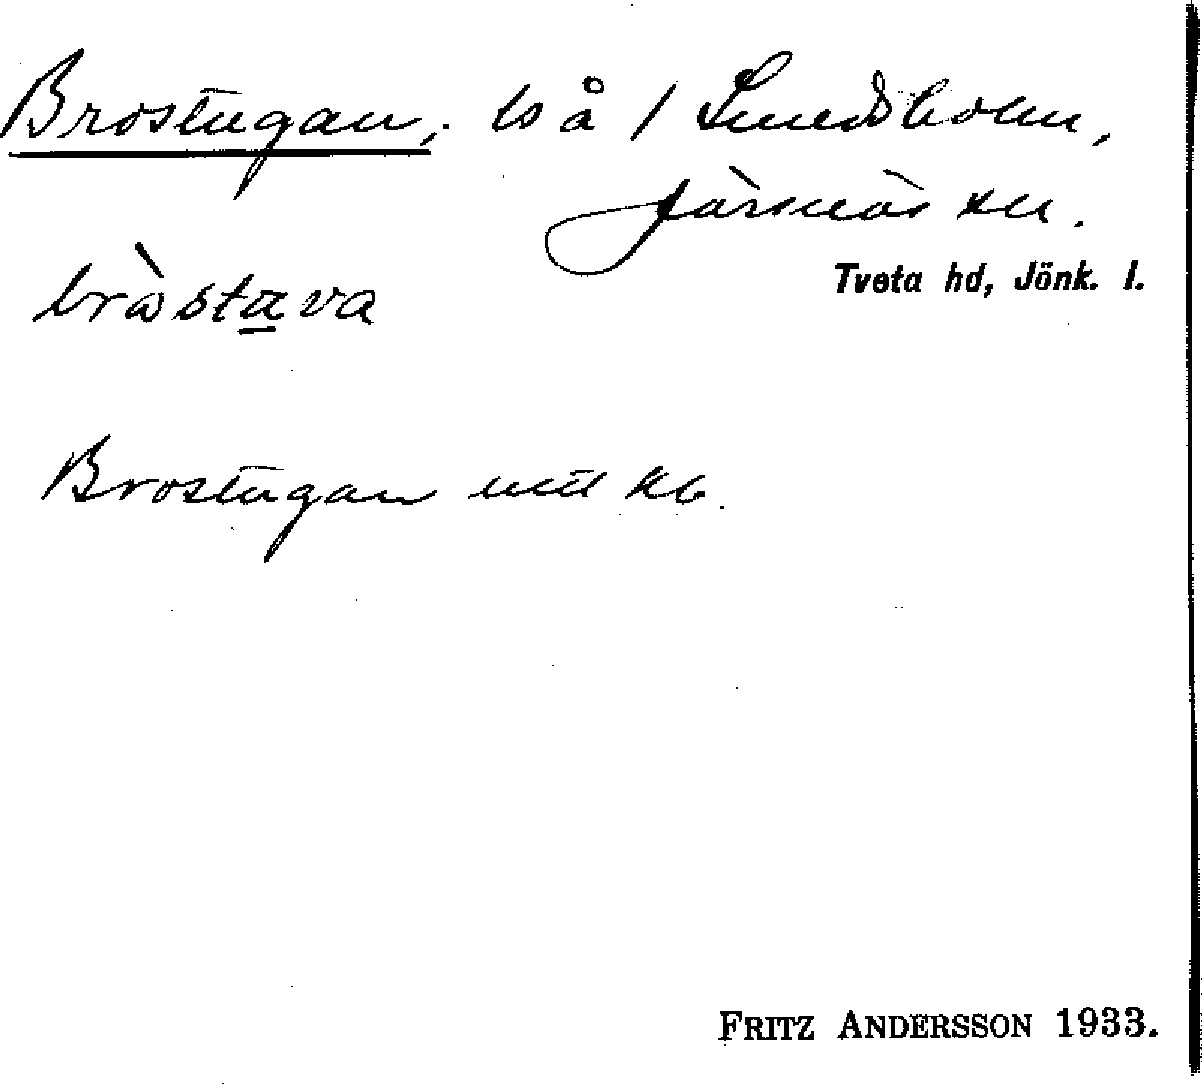 Brostugan, ts å 1 Smedsholm,
Järsnäs sn.
Tveta hd, Jönk. l.
bròstava
Brostugan utt kb.
FRITZ ANDERSSON 1933.